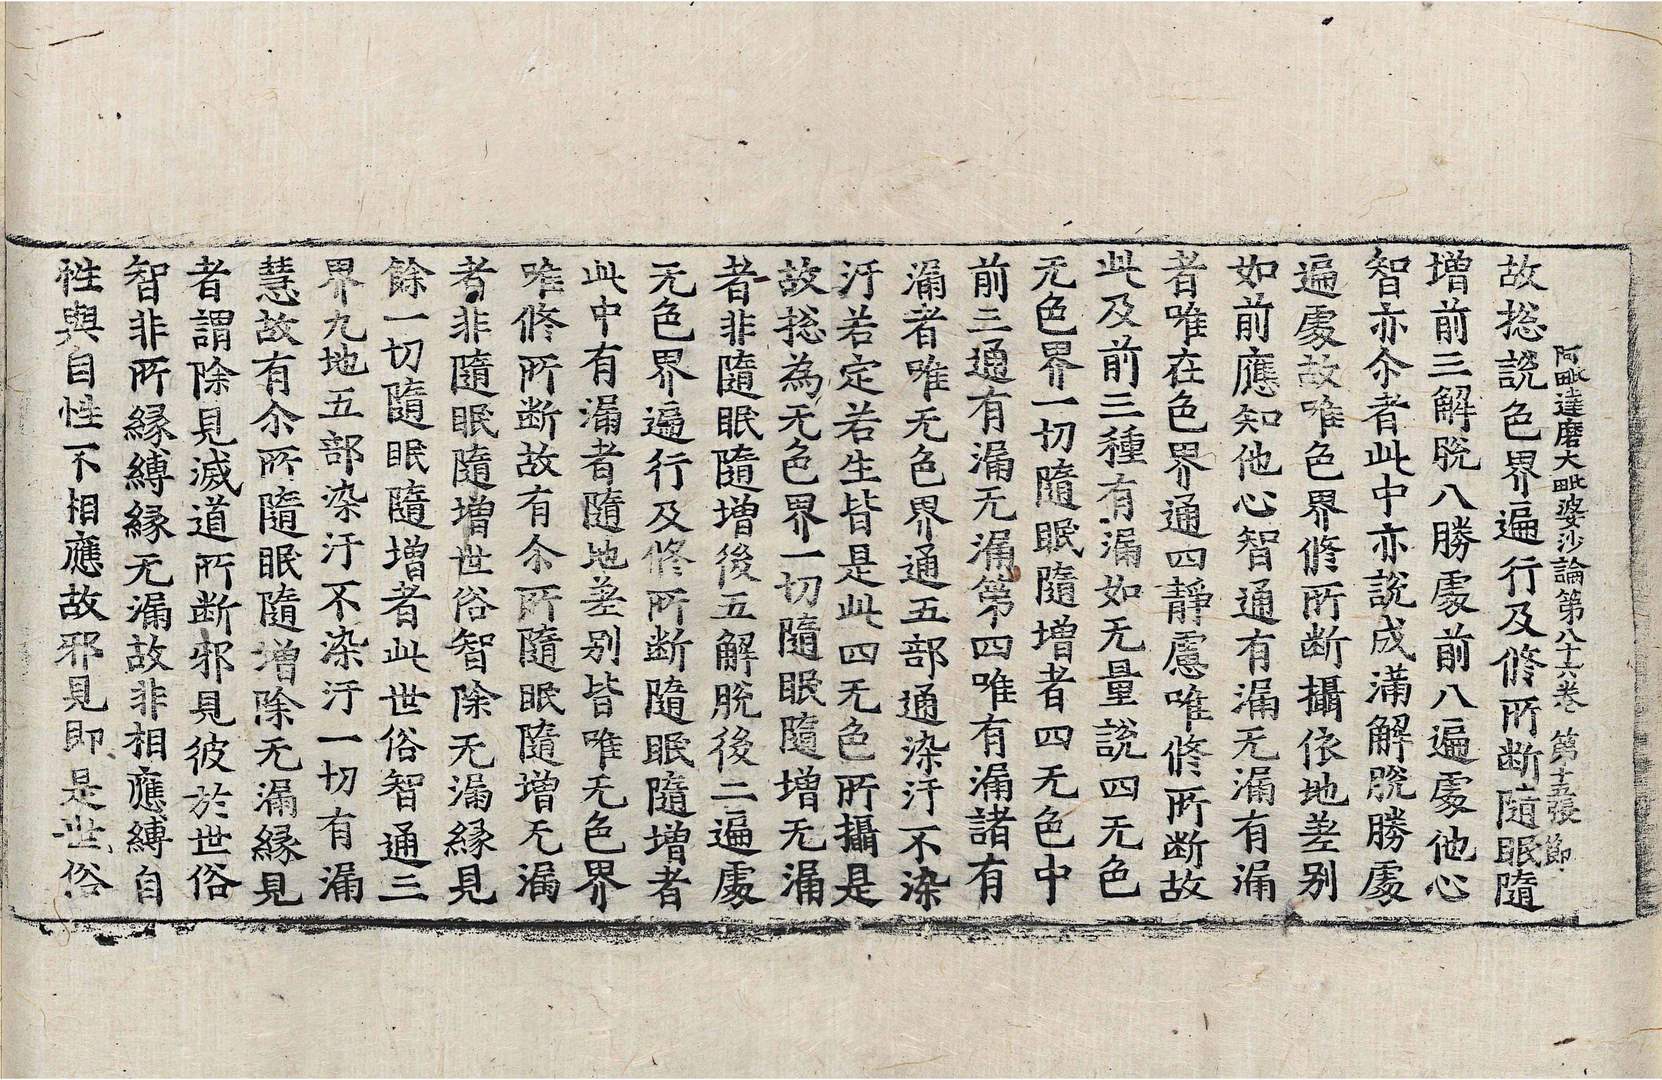 阿毗達磨大毗婆沙論第八十六卷 第十五張 節
故摠說色界遍行及修所断隨眠隨
增前三解脫八勝處前八遍處他心
智亦尒者此中亦說成滿解脫勝處
遍處故唯色界修所断攝依地差别
如前應知他心智通有漏无漏有漏
者唯在色界通四靜慮唯修所断故
此及前三種有漏如无量說四无色
无色界一切隨眠隨增者四无色中
前三通有漏无漏第四唯有漏諸有
漏者唯无色界通五部通染汙不染
汙若定若生皆是此四无色所攝是
故摠為无色界一切隨眠隨增无漏
者非隨眠隨增後五解脫後二遍處
无色界遍行及修所断隨眠隨增者
此中有漏者隨地差别皆唯无色界
唯修所断故有尒所隨眠隨增无漏
者非隨眠隨增世俗智除无漏緣見
餘一切隨眠隨增者此世俗智通三
界九地五部染汙不染汙一切有漏
慧故有尒所隨眠隨增除无漏緣見
者謂除見滅道所断邪見彼於世俗
智非所緣縛緣无漏故非相應縛自
性與自性不相應故邪見即是世俗